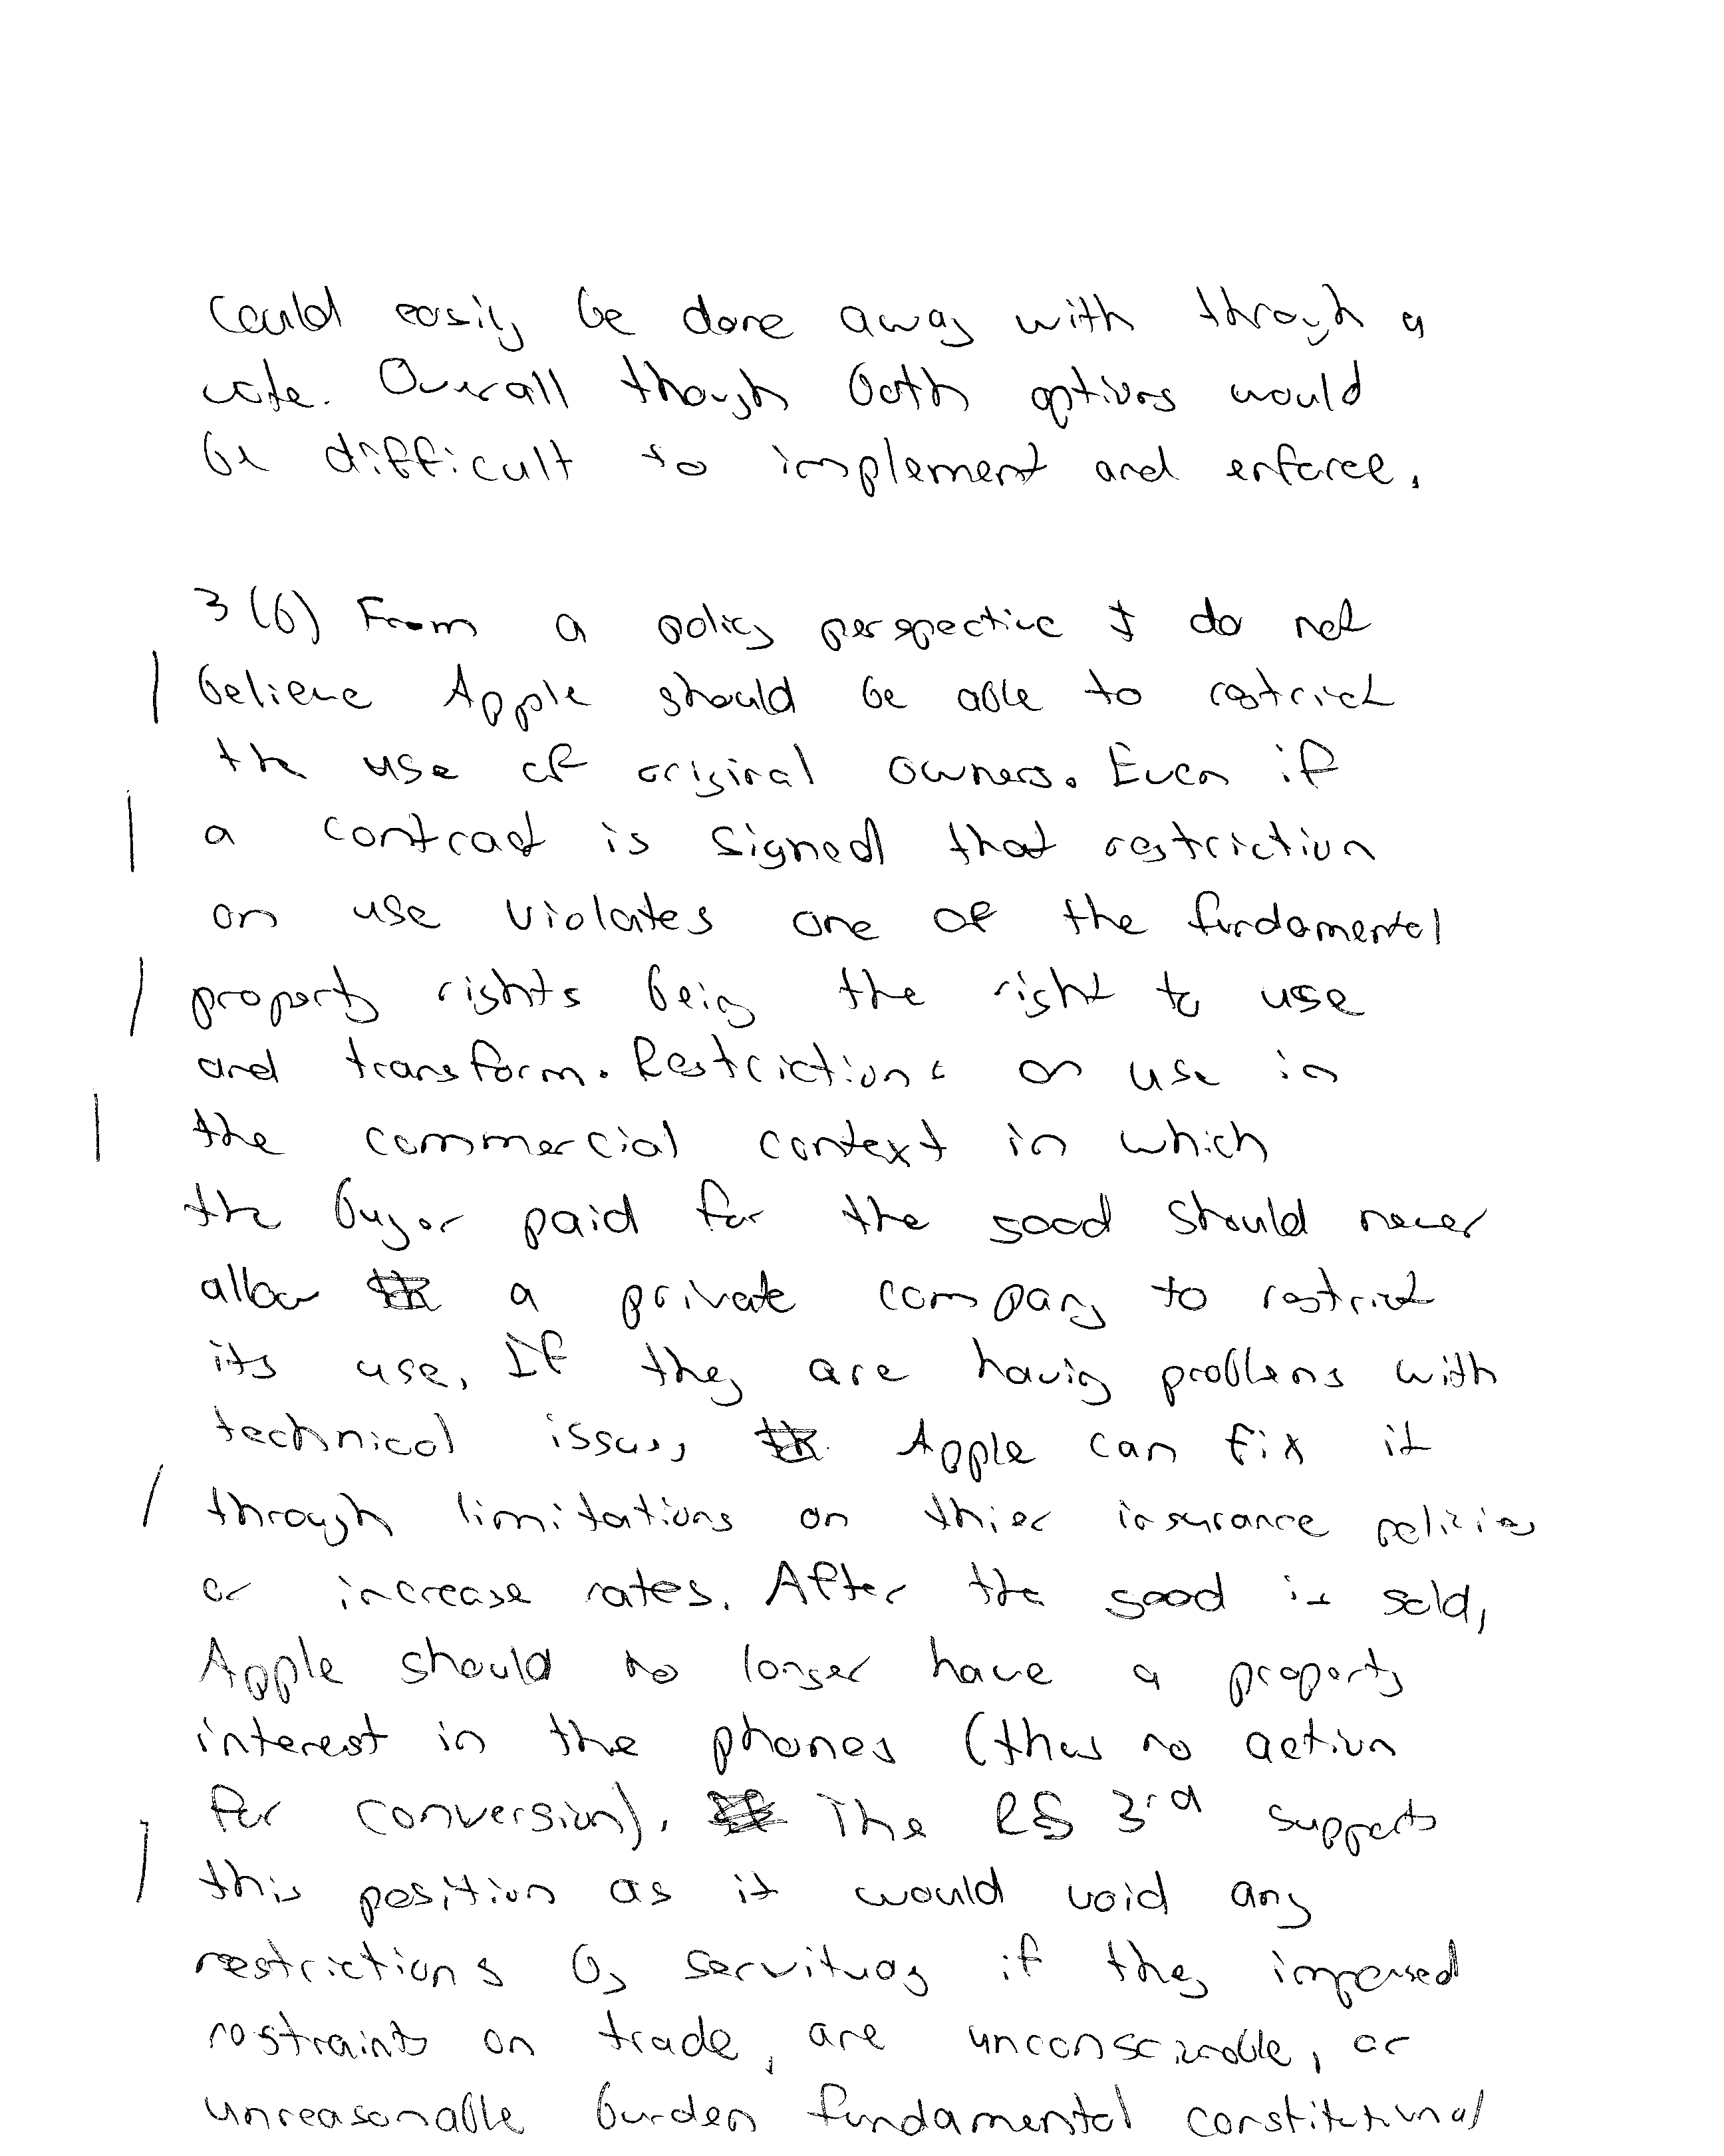 could easily be done away with through a
vote. Overall though both options would
be difficult to implement and enforce.
3(b) From a policy perspective I do not
believe Apple should be able to restrict
the use of original owners. Even if
a contract is signed that restriction
on use violates one of the fundamental
property rights being the right to use
and transform. Restrictions on use in
the commercial context in which
the buyer paid for the good should never
allow a private company to restrict
its use. If they are having problems with
technical issues, Apple can fix it
through limitations on thier insurance policies
or increase rates. After the good is sold,
Apple should no longer have a property
interest in the phones (thus no action
for conversion). The RS 3rd supports
this position as it would void any
restrictions by servitudes if they imposed
restraints on trade, are unconscionable, or
unreasonable burden fundamental constitutional